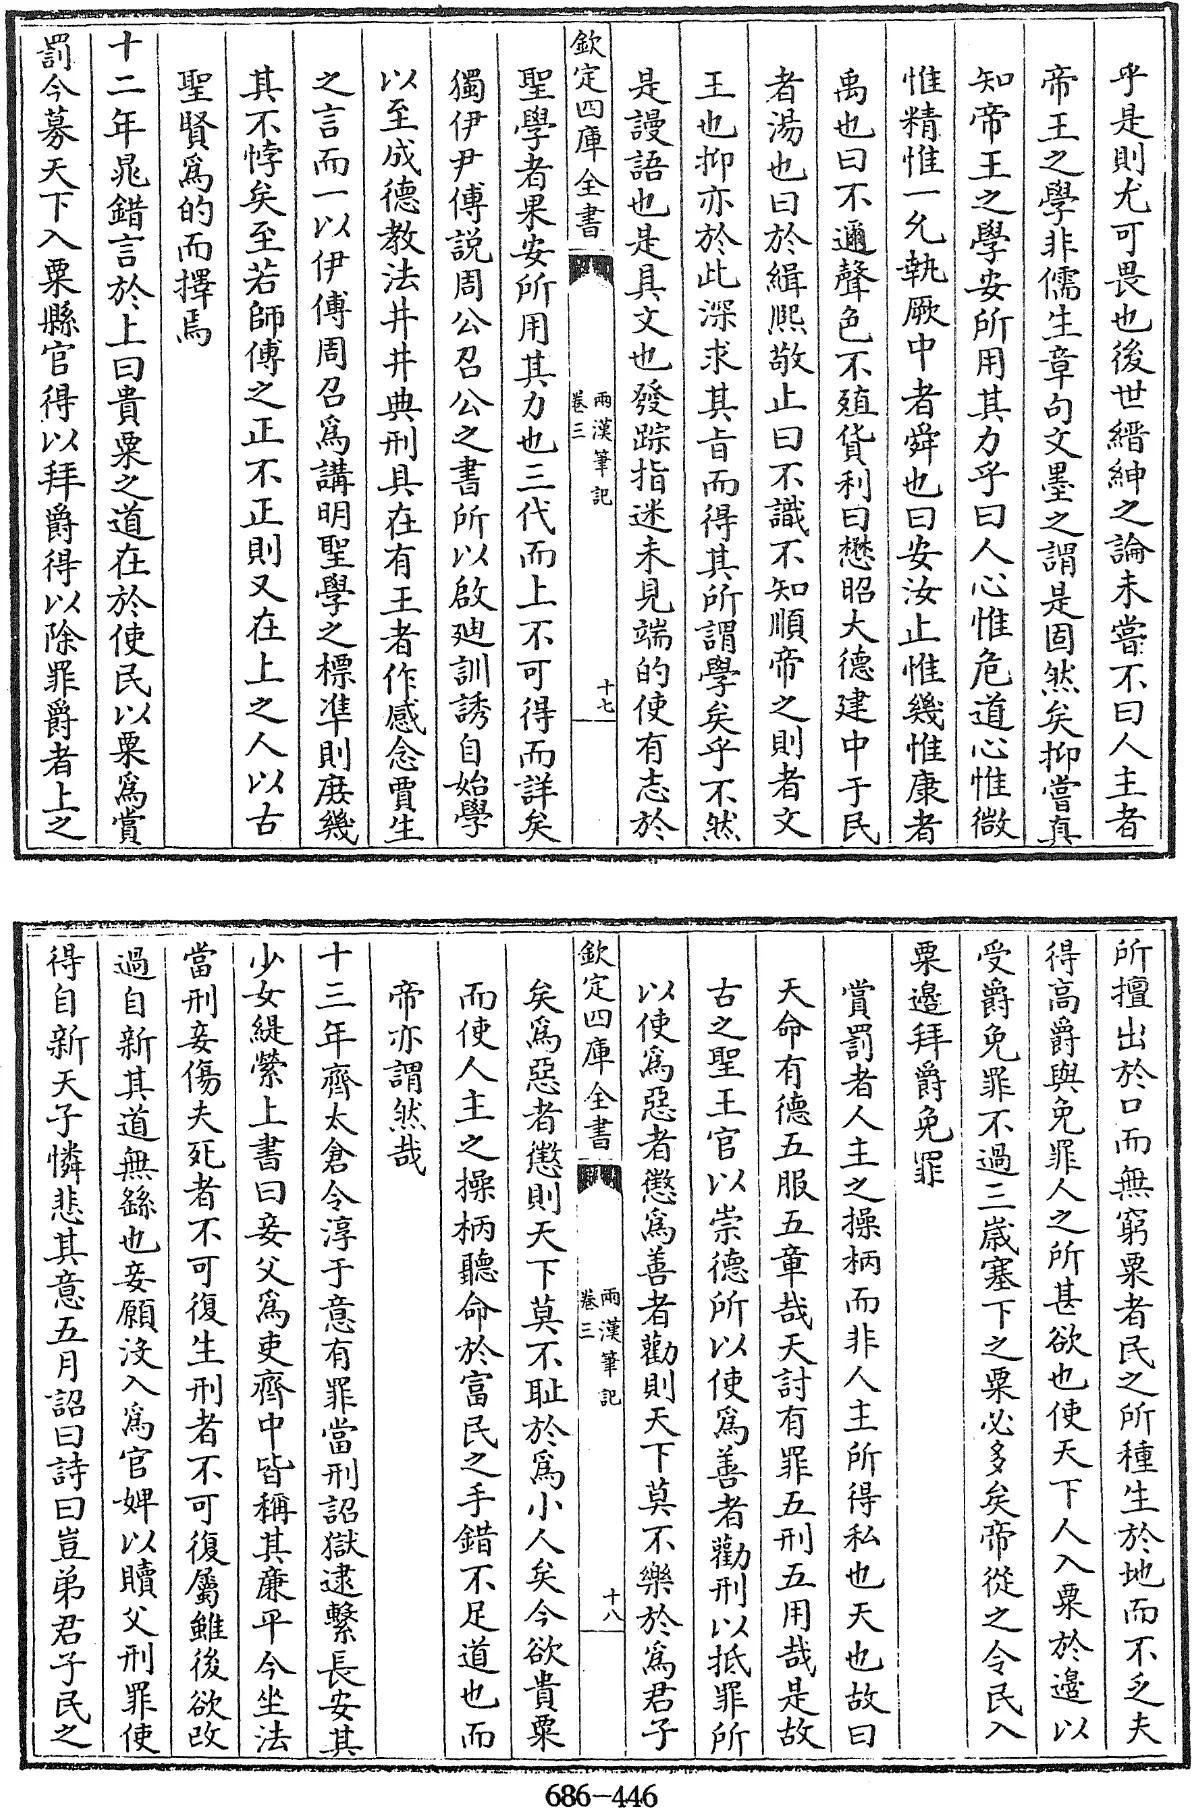 乎是則尤可畏也後世縉紳之論未嘗不曰人主者
帝王之學非儒生章句文墨之謂是固然矣抑嘗真
知帝王之學安所用其力乎曰人心惟危道心惟微
惟精惟一允執厥中者舜也曰安汝止惟幾惟康者
禹也曰不邇聲色不殖貨利曰懋昭大德建中于民
者湯也曰於緝熙敬止曰不識不知順帝之則者文
王也抑亦於此深求其旨而得其所謂學矣乎不然
是謾語也是具文也發踪指迷未見端的使有志於
欽定四庫全書
兩漢筆記
卷三
十七
聖學者果安所用其力也三代而上不可得而詳矣
獨伊尹傅説周公召公之書所以啟廸訓誘自始學
以至成德教法井井典刑具在有王者作感念賈生
之言而一以伊傅周召爲講明聖學之標準則庶幾
其不悖矣至若師傅之正不正則又在上之人以古
聖賢爲的而擇焉
十二年鼂錯言於上曰貴粟之道在於使民以粟爲賞
罰今募天下入粟縣官得以拜爵得以除罪爵者上之
所擅出於口而無窮粟者民之所種生於地而不乏夫
得高爵與免罪人之所甚欲也使天下人入粟於邊以
受爵免罪不過三歳塞下之粟必多矣帝從之令民入
粟邊拜爵免罪
賞罰者人主之操柄而非人主所得私也天也故曰
天命有德五服五章哉天討有罪五刑五用哉是故
古之聖王官以崇德所以使爲善者勸刑以抵罪所
以使爲惡者懲爲善者勸則天下莫不樂於爲君子
欽定四庫全書
兩漢筆記
卷三
十八
矣爲惡者懲則天下莫不耻於爲小人矣今欲貴粟
而使人主之操柄聽命於富民之手錯不足道也而
帝亦謂然哉
十三年齊太倉令淳于意有罪當刑詔獄逮繫長安其
少女緹縈上書曰妾父爲吏齊中皆稱其廉平今坐法
當刑妾傷夫死者不可復生刑者不可復屬雖後欲改
過自新其道無繇也妾願没入爲官婢以贖父刑罪使
得自新天子憐悲其意五月詔曰詩曰豈弟君子民之
686-446